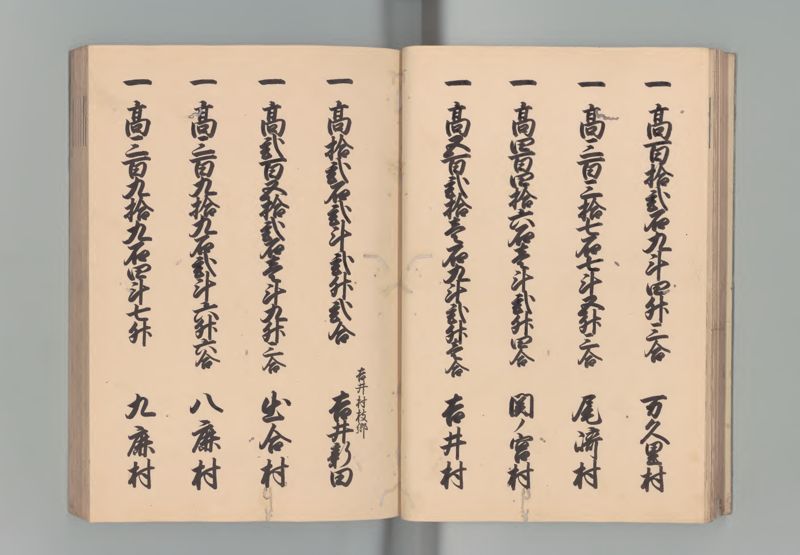 一 高百拾弐石九斗四升三合 万久里村
一 高三百三拾七石七斗五升三合 尾崎村
一 高四百四拾六石壱斗弐升四合 関ノ宮村
一 高五百弐拾壱石九斗弐升七合 吉井村
一 高拾弐石弐斗弐升弐合 吉井村枝郷 吉井新田
一 高弐百五拾弐石壱斗九升三合 出合村
一 高三百九拾九石弐斗六升六合 八鹿村
一 高三百九拾九石四斗七升 九鹿村